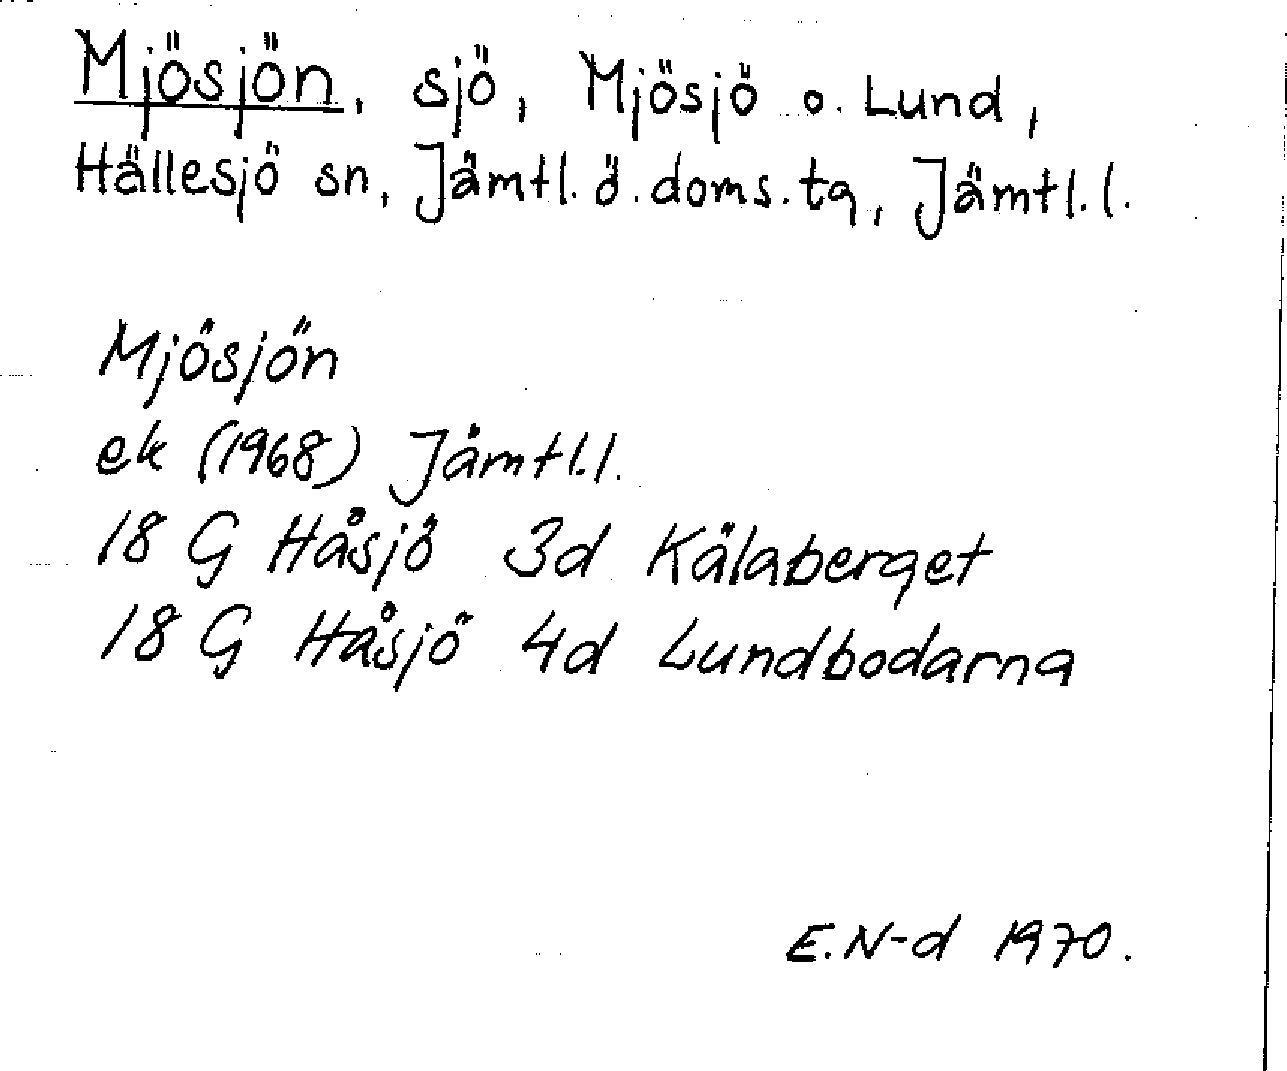 Mjösjön, sjö, Mjösjö o. Lund,
Hällesjö sn, Jämtl. ö. doms. tg, Jämtl. l.
Mjösjön
ek (1968) Jämtl. l.
18 G Håsjö 3d Kälaberget
18 G Håsjö 4d Lundbodarna
E. N-d 1970.